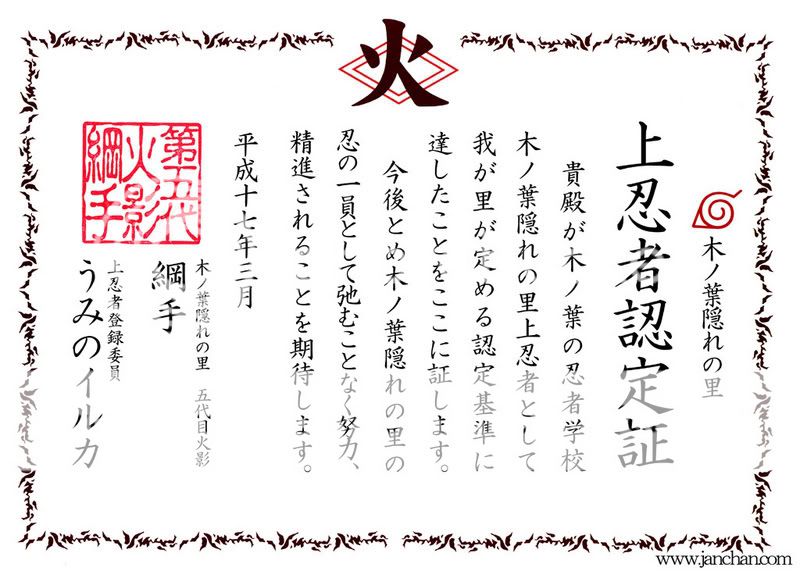 火
木ノ葉隠れの里
上忍者認定証
貴殿が木ノ葉の忍者学校
木ノ葉隠れの里上忍者として
我が里が定める認定基準に
達したことをここに証します。
今後とめ木ノ葉隠れの里の
忍の一員として弛むことなく努力、
精進されることを期待します。
平成十七年三月
木ノ葉隠れの里 五代目火影
綱手
上忍者登録委員
うみのイルカ
第五代
火影
綱手
www.janchan.com